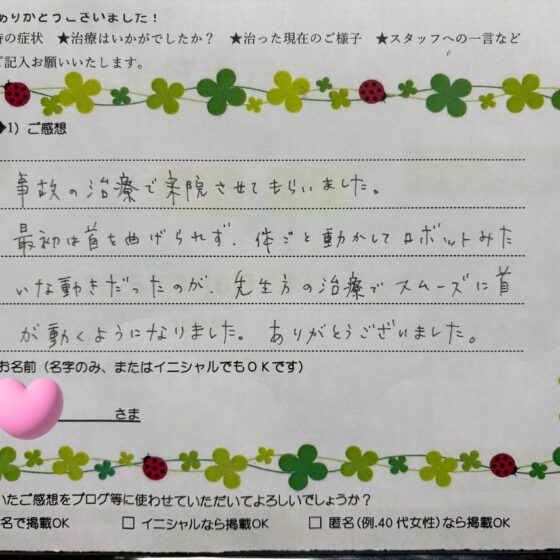 ありがとうございました！
時の症状　★治療はいかがでしたか？　★治った現在のご様子　★スタッフへの一言など
ご記入お願いいたします。
◆1）ご感想
事故の治療で来院させてもらいました。
最初は首を曲げられず、体ごと動かしてロボットみた
いな動きだったのが、先生方の治療でスムーズに首
が動くようになりました。ありがとうございました。
お名前（名字のみ、またはイニシャルでもＯＫです）
さま
いたご感想をブログ等に使わせていただいてよろしいでしょうか？
名で掲載OK　□ イニシャルなら掲載OK　□ 匿名(例.40代女性)なら掲載OK